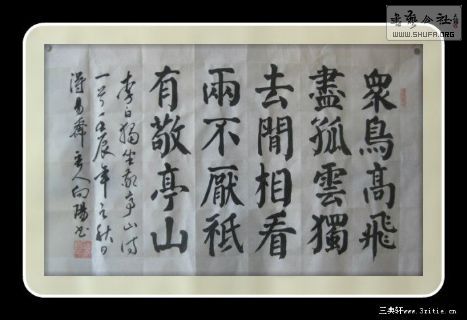 眾鳥高飛
盡孤雲獨
去閒相看
兩不厭祗
有敬亭山
李白獨坐敬亭山詩
一首壬辰年之秋日
向陽書
書法会社
www.SHUFA.ORG
三典轩www.3zitie.cn